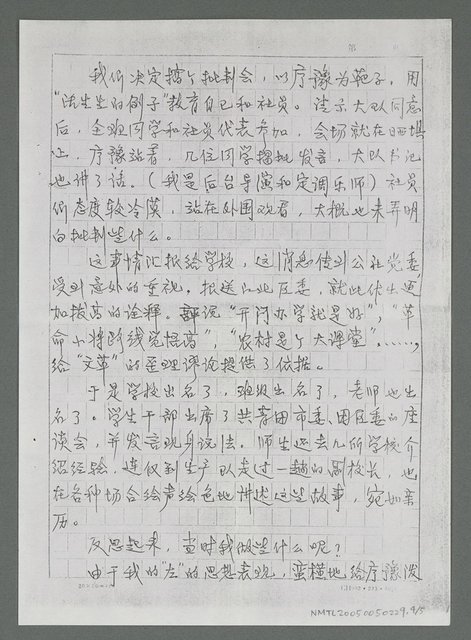 第
我们决定搞个批判会，以序豫为靶子，用
“活生生的例子”教育自己和社员。请示大队同意
后，全班同学和社员代表参加，会场就在晒场
上，序豫站着，几位同学揭批发言，大队书记
也讲了话。（我是后台导演和定调乐师）社员
们态度较冷漠，站在外围观看，大概也未弄明
白批判些什么。
这事情汇报给学校，这消息传到公社党委
受到意外的重视。报送
加拔高的诠释。说“开门办学就是好”，“革
命小将阶级觉悟高”，“农村是个大课堂”……，
给“文革”的歪理谬论提供了依据。
于是学校出名了，班级出名了，老师也出
名了。学生干部出席了共青团市委、团区委的座
谈会，并发言现身说法。师生还去几所学校介
绍经验，连仅到生产队走过一趟的副校长，也
在各种场合绘声绘色地讲述这些故事，宛如亲
历。
反思起来，当时我做些什么呢？
由于我的“左”的思想表现，蛮横地给序豫泼
NMTL20050050229.4/5